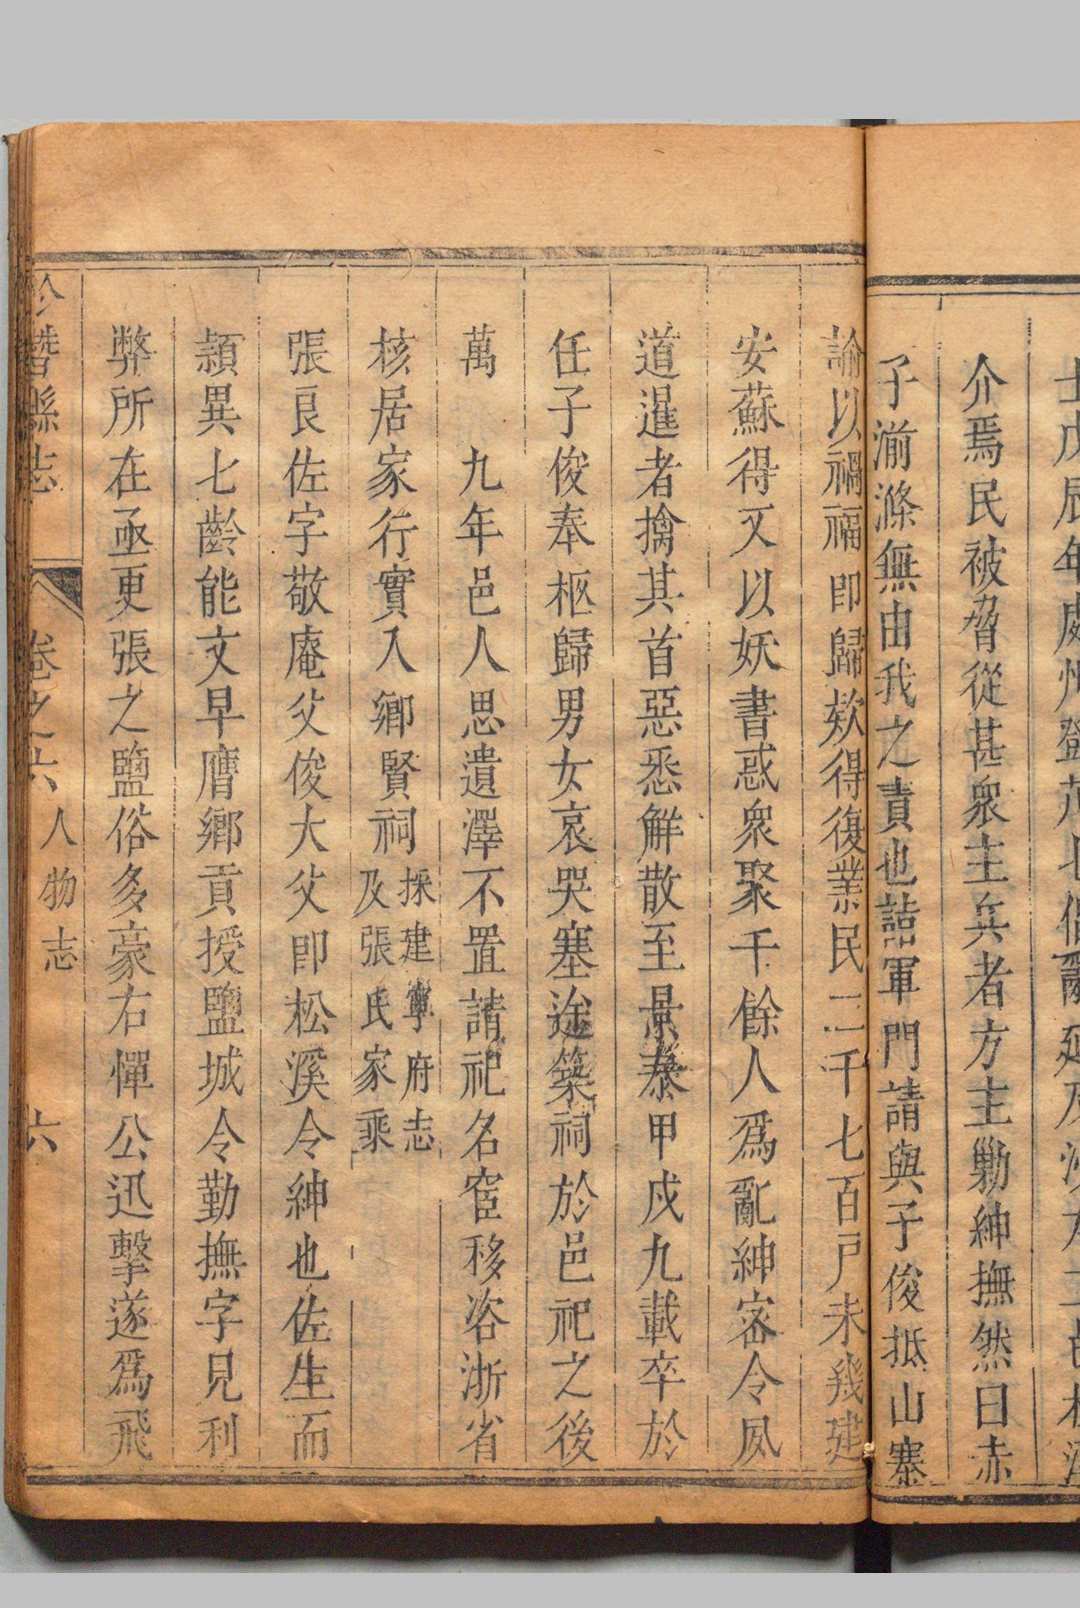 士戊辰年處州鄧茂七倡亂延及
介焉民被脅從甚衆主兵者方主勦紳撫然曰赤
子湔滌無由我之責也詣軍門請與子俊抵山寨
諭以禍福即歸欵得復業民二千七百戸未幾建
安蘇得又以妖書惑衆聚千餘人爲亂紳密令夙
道暹者擒其首惡悉解散至景泰甲戌九載卒於
任子俊奉柩歸男女哀哭塞途築祠於邑祀之後
萬　九年邑人思遺澤不置請祀名宦移咨浙省
核居家行實入鄉賢祠
採建寧府志
及張氏家乘
張良佐字敬庵父俊大父即松溪令紳也佐生而
頴異七齡能文早膺鄉貢授鹽城令勤撫字見利
弊所在亟更張之鹽俗多豪右憚公迅擊遂爲飛
縣志
卷之六
人物志
六